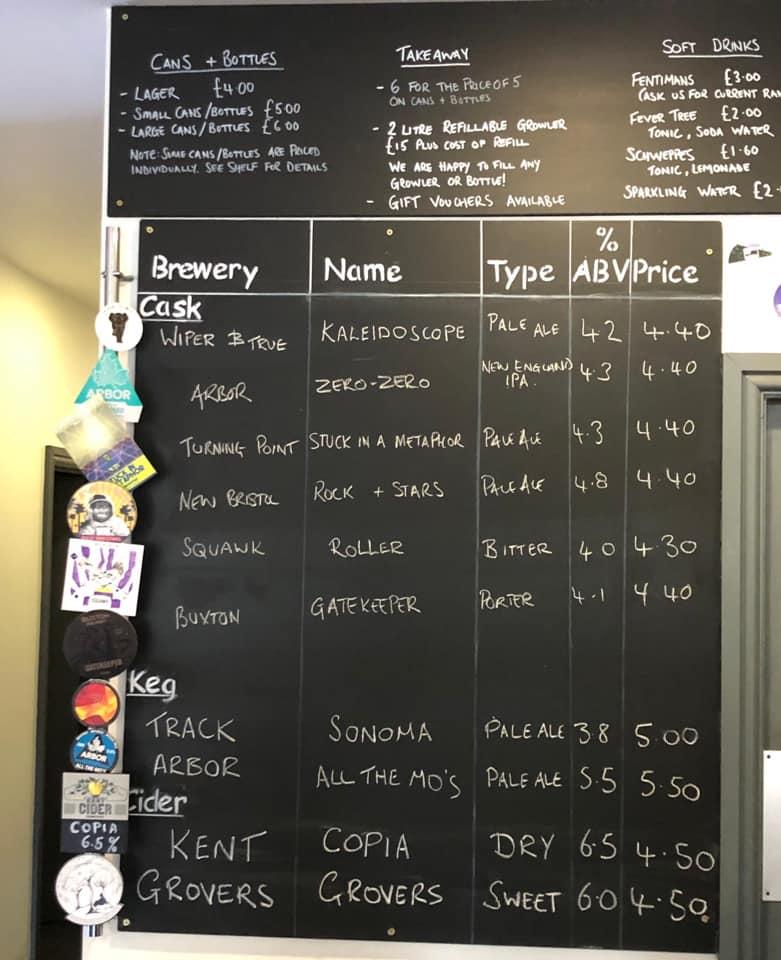 CANS + BOTTLES
- LAGER £4.00
- SMALL CANS/BOTTLES £5.00
- LARGE CANS/BOTTLES £6.00
NOTE: SOME CANS/BOTTLES ARE PRICED
INDIVIDUALLY. SEE SHELF FOR DETAILS
TAKEAWAY
- 6 FOR THE PRICE OF 5
ON CANS + BOTTLES
- 2 LITRE REFILLABLE GROWLER
£15 PLUS COST OF REFILL
WE ARE HAPPY TO FILL ANY
GROWLER OR BOTTLE!
- GIFT VOUCHERS AVAILABLE
SOFT DRINKS
FENTIMANS £3.00
(ASK US FOR CURRENT RAN
FEVER TREE £2.00
TONIC, SODA WATER
SCHWEPPES £1.60
TONIC, LEMONADE
SPARKLING WATER £2.
Brewery Name Type % ABV Price
Cask
WIPER & TRUE KALEIDOSCOPE PALE ALE 4.2 4.40
ARBOR ZERO-ZERO NEW ENGLAND IPA. 4.3 4.40
TURNING POINT STUCK IN A METAPHOR PALE ALE 4.3 4.40
NEW BRISTOL ROCK + STARS PALE ALE 4.8 4.40
SQUAWK ROLLER BITTER 4.0 4.30
BUXTON GATEKEEPER PORTER 4.1 4.40
Keg
TRACK SONOMA PALE ALE 3.8 5.00
ARBOR ALL THE MO'S PALE ALE 5.5 5.50
Cider
KENT COPIA DRY 6.5 4.50
GROVERS GROVERS SWEET 6.0 4.50
ARBOR
GATEKEEPER
ARBOR
KENT
CIDER
COPIA
6.5%